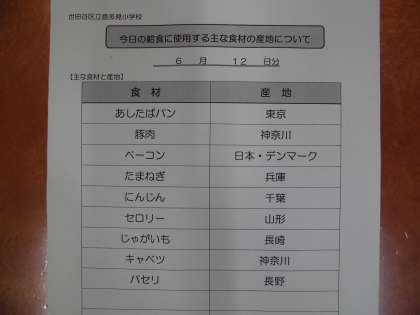 世田谷区立喜多見小学校
今日の給食に使用する主な食材の産地について
6 月 12 日分
【主な食材と産地】
食 材 産 地
あしたばパン 東京
豚肉 神奈川
ベーコン 日本・デンマーク
たまねぎ 兵庫
にんじん 千葉
セロリー 山形
じゃがいも 長崎
キャベツ 神奈川
パセリ 長野